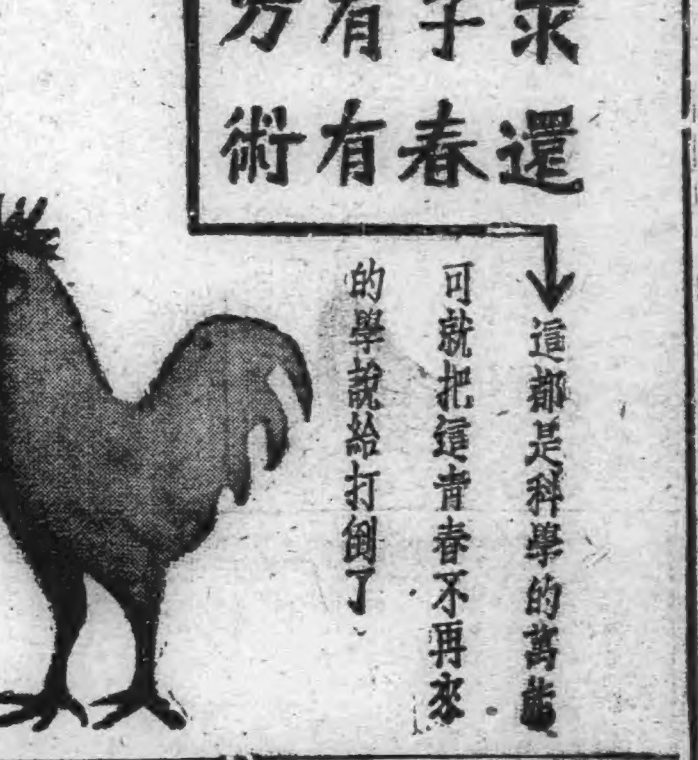 求子有方
還春有術
這都是科學的萬能
可就把這青春不再來
的學說給打倒了